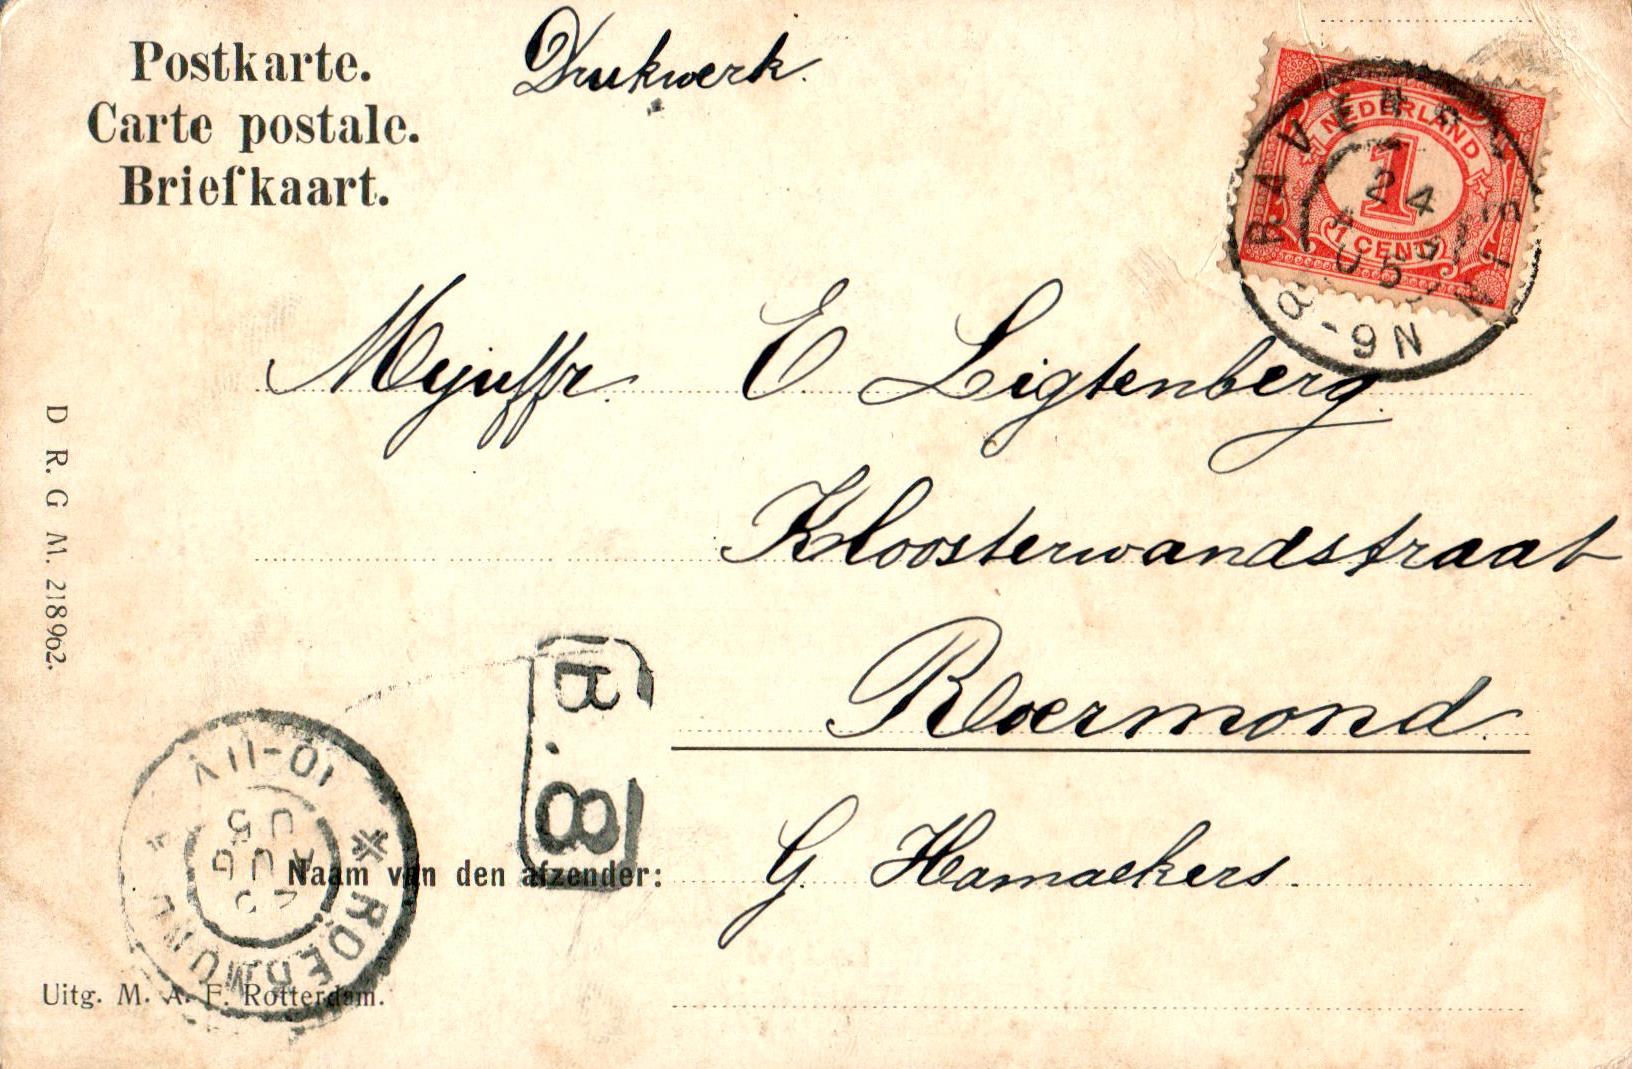 Postkarte.
Carte postale.
Briefkaart.
Drukwerk.
NEDERLAND
1
1 CENT
24
05
8-9N
Mejuffr. E. Ligtenberg.
Kloosterwandstraat
Roermond.
D R. G M. 218902.
B.8
10-11V
AUG
05
ROERMOND
Naam van den afzender: G. Hamaekers.
Uitg. M. A. F. Rotterdam.